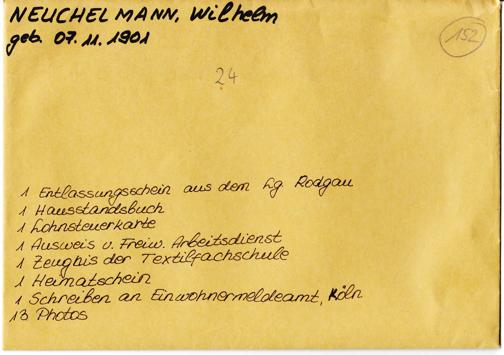 NEUCHELMANN, Wilhelm
geb. 07.11.1901
152
24
1 Entlassungsschein aus dem Lg. Rodgau
1 Hausstandsbuch
1 Lohnsteuerkarte
1 Ausweis v. Freiw. Arbeitsdienst
1 Zeugnis der Textilfachschule
1 Heimatschein
1 Schreiben an Einwohnermeldeamt, Köln
13 Photos